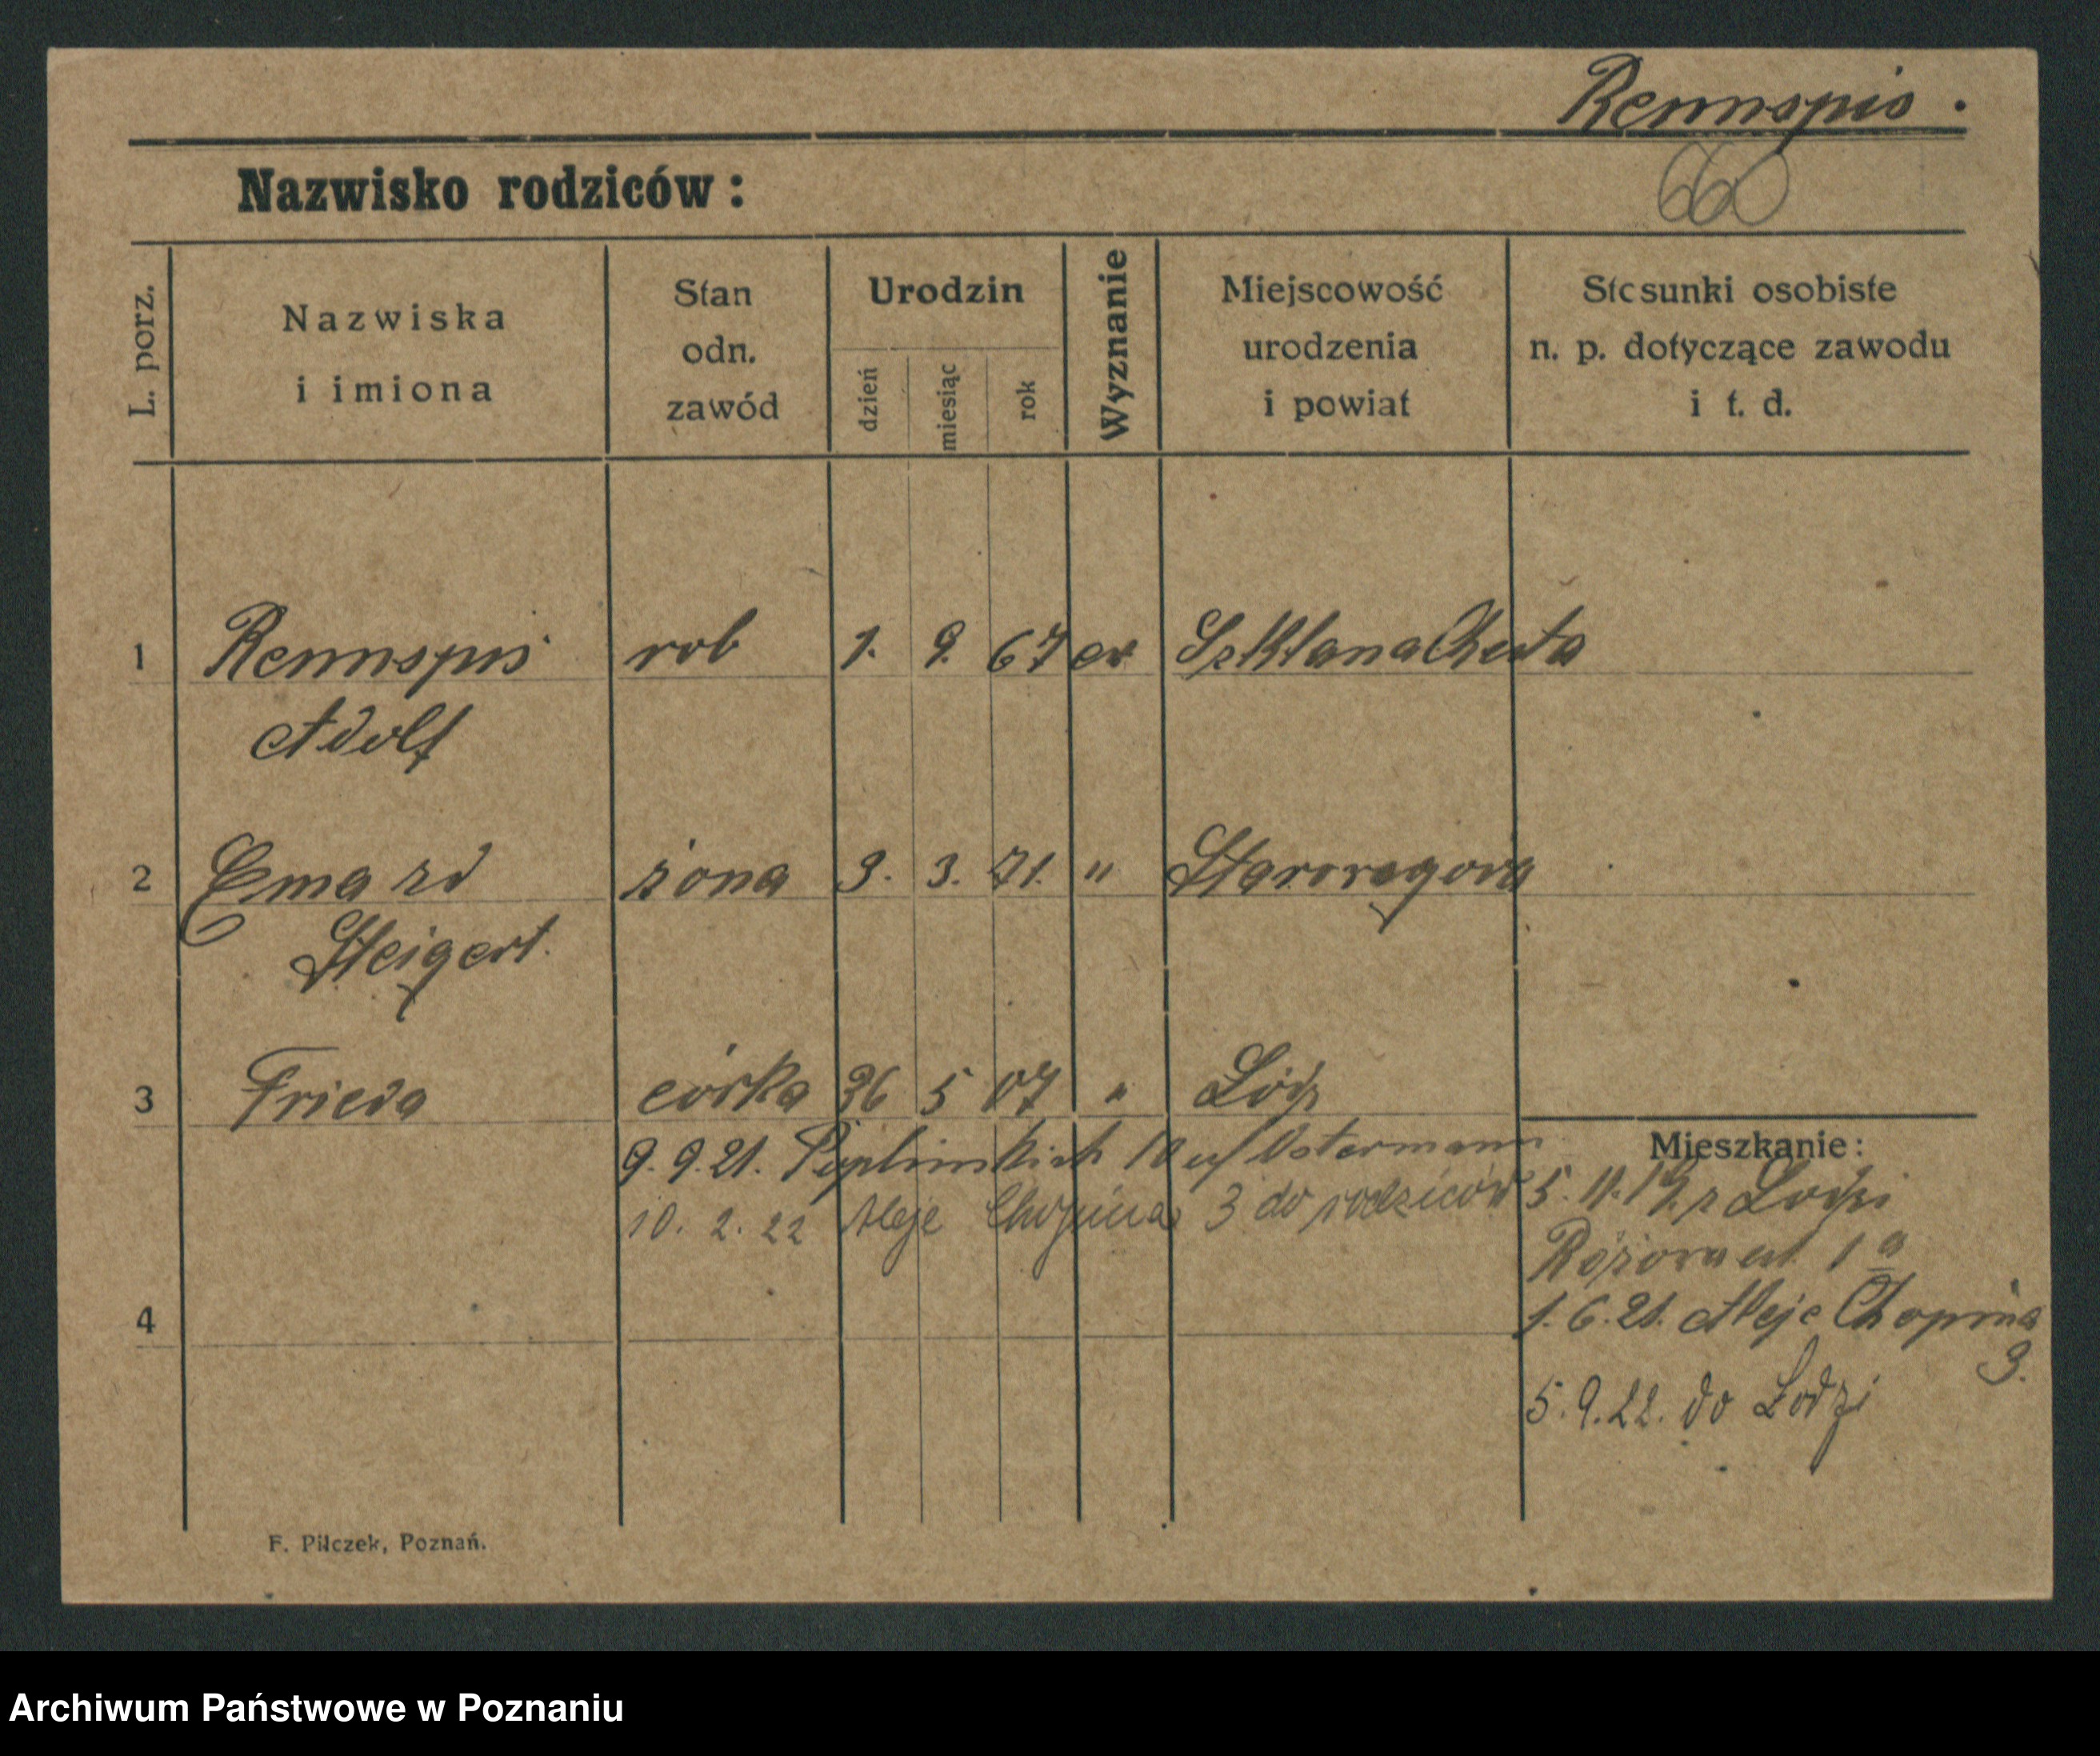 Rennspis.
660
Nazwisko rodziców:
L. porz.
Nazwiska
i imiona
Stan
odn.
zawód
Urodzin
dzień
miesiąc
rok
Wyznanie
Miejscowość
urodzenia
i powiat
Stosunki osobiste
n. p. dotyczące zawodu
i t. d.
1 Rennspis rob 1. 9. 67 ew Szklana Huta
Adolf
2 Ema zd żona 3. 3. 71. "
Steigert.
3 Frieda córka 26 5 07 " Łódź
9. 9. 21. 10 Ostermann
10. 2. 22 Aleje Chopina 3 do rodziców
4
Mieszkanie:
5. 11. 19 z Łodzi
1 a
1. 6. 21. Aleje Chopina
3.
5. 9. 22. do Łodzi
F. Pilczek, Poznań.
Archiwum Państwowe w Poznaniu